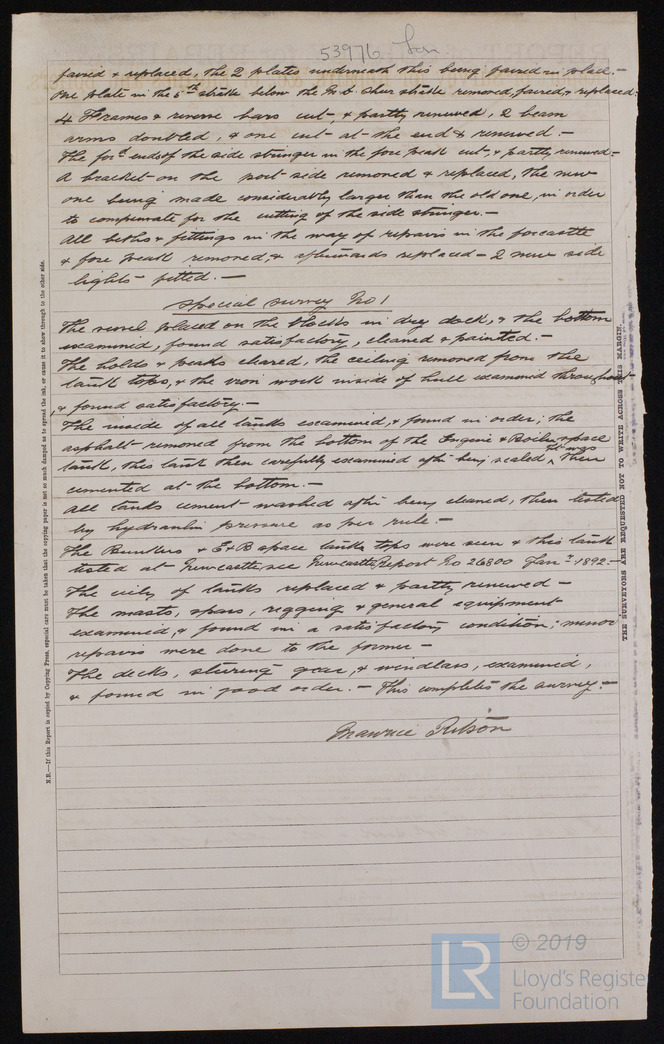 53976 Lon
faired & replaced, the 2 plates underneath this being faired in place.—
One plate in the 5th strake below the M.D. sheer strake removed, faired, & replaced.
4 Frames & reverse bars cut, & partly renewed, 2 beam
arms doubled, & one cut at the end & renewed.—
The ford ends of the side stringer in the fore peak cut, & partly renewed.—
A bracket on the port side removed & replaced, the new
one being made considerably larger than the old one, in order
to compensate for the cutting of the side stringer.—
All berths & fittings in the way of repairs in the forecastle
& fore peak removed, & afterwards replaced — 2 new side
lights fitted.—
Special Survey No 1
The vessel placed on the blocks in dry dock, & the bottom
examined, found satisfactory, cleaned & painted.—
The holds & peaks cleared, the ceiling removed from the
tank tops, & the iron work inside of hull examined throughout
& found satisfactory.—
The inside of all tanks examined, & found in order; the
asphalt removed from the bottom of the Engine & Boiler space
tank, this tank then carefully examined after being scaled & was then
cemented at the bottom.—
All tanks cement washed after being cleaned, then tested
by hydraulic pressure as per rule.—
The Bunkers & E&B space tank tops were seen & this tank
tested at Newcastle, see Newcastle Report No 26800 Jany 1892.—
The ceiling of tanks replaced & partly renewed —
The masts, spars, rigging & general equipment
examined, & found in a satisfactory condition; minor
repairs were done to the former —
The decks, steering gear, & windlass, examined,
& found in good order.— This completes the survey.—
Maurice Ritson
N.B.—If this Report is copied by Copying Press, especial care must be taken that the copying paper is not so much damped as to spread the ink, or cause it to show through to the other side.
THE SURVEYORS ARE REQUESTED NOT TO WRITE ACROSS THIS MARGIN.
© 2019
LR
Lloyd's Register
Foundation